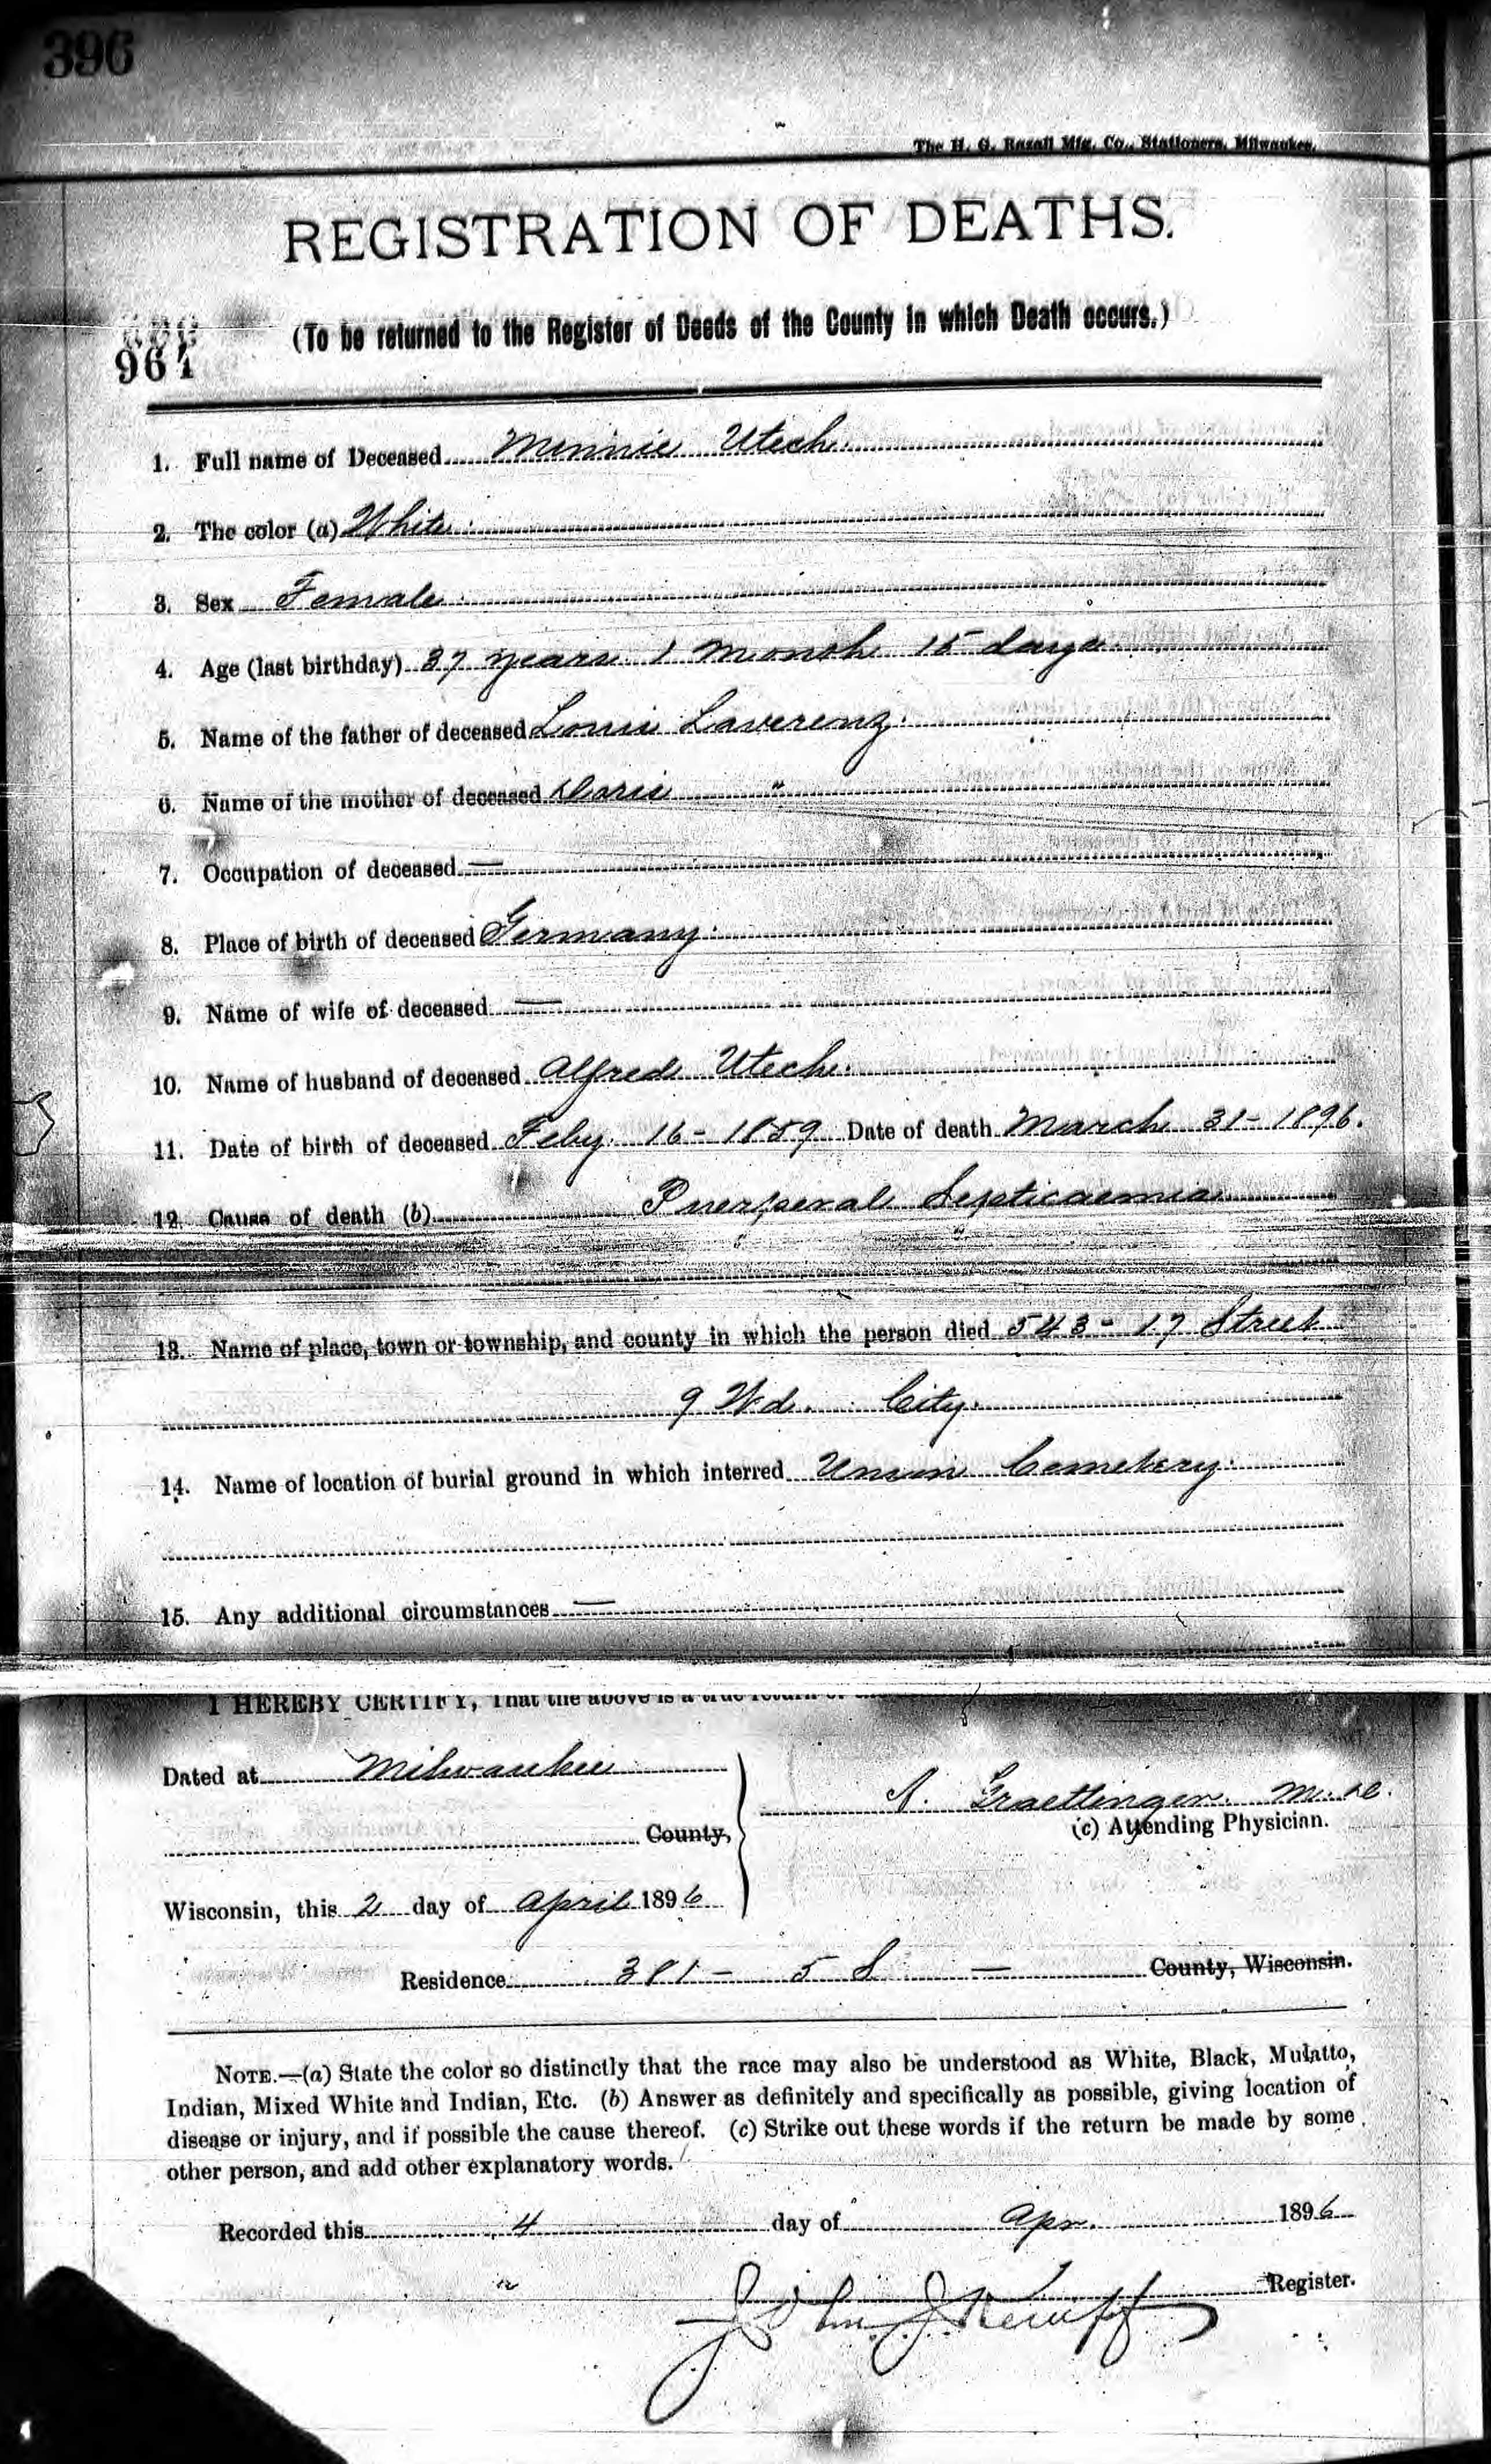 396
The H. G. Razall Mfg. Co., Stationers, Milwaukee.
REGISTRATION OF DEATHS.
(To be returned to the Register of Deeds of the County in which Death occurs.)
964
1. Full name of Deceased Minnie Utech.
2. The color (a) White.
3. Sex Female.
4. Age (last birthday) 37 years 1 month 15 days.
5. Name of the father of deceased Louis Laverenz.
6. Name of the mother of deceased "
7. Occupation of deceased —
8. Place of birth of deceased Germany.
9. Name of wife of deceased —
10. Name of husband of deceased Alfred Utech.
11. Date of birth of deceased Feby. 16 - 1859 Date of death March 31 - 1896.
12. Cause of death (b) Puerperal Septicaemia
13. Name of place, town or township, and county in which the person died 543 - 17 Street
9 Wd. City.
14. Name of location of burial ground in which interred Union Cemetery.
15. Any additional circumstances —
I HEREBY CERTIFY, That the above is a true return
Dated at Milwaukee
A. Graettinger M.D.
(c) Attending Physician.
County,
Wisconsin, this 2 day of April 1896
Residence 381 - 5 S — County, Wisconsin.
NOTE.—(a) State the color so distinctly that the race may also be understood as White, Black, Mulatto,
Indian, Mixed White and Indian, Etc. (b) Answer as definitely and specifically as possible, giving location of
disease or injury, and if possible the cause thereof. (c) Strike out these words if the return be made by some
other person, and add other explanatory words.
Recorded this 4 day of Apr. 1896
Register.
John J Kempf